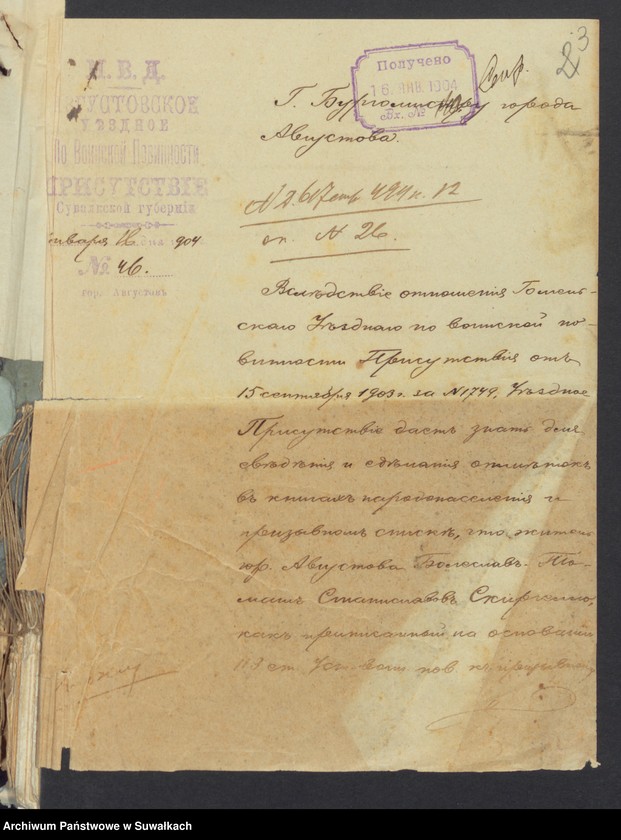 М. В. Д.
АВГУСТОВСКОЕ
УѢЗДНОЕ
По Воинской Повинности
ПРИСУТСТВІЕ
Сувалкской губерніи
января 16 дня 1904
№ 46.
гор. Августовъ
Получено
16 ЯНВ. 1904
Вх. №
23
Г. Бургомистру города
Августова.
стр 499 н. 12
оп. № 26.
Вслѣдствіе отношенія Гомель-
скаго Уѣзднаго по воинской по-
винности Присутствія отъ
15 сентября 1903 г. за № 1749, Уѣздное
Присутствіе даетъ знать для
свѣдѣнія и сдѣланія отмѣтокъ
въ книгахъ народонаселенія и
призывномъ спискѣ, что житель
гор. Августова Болеславъ-То-
машъ Станиславовъ Скиргелло,
какъ приписанный на основаніи
113 ст. Уст. воин. пов. къ призывному
Archiwum Państwowe w Suwałkach